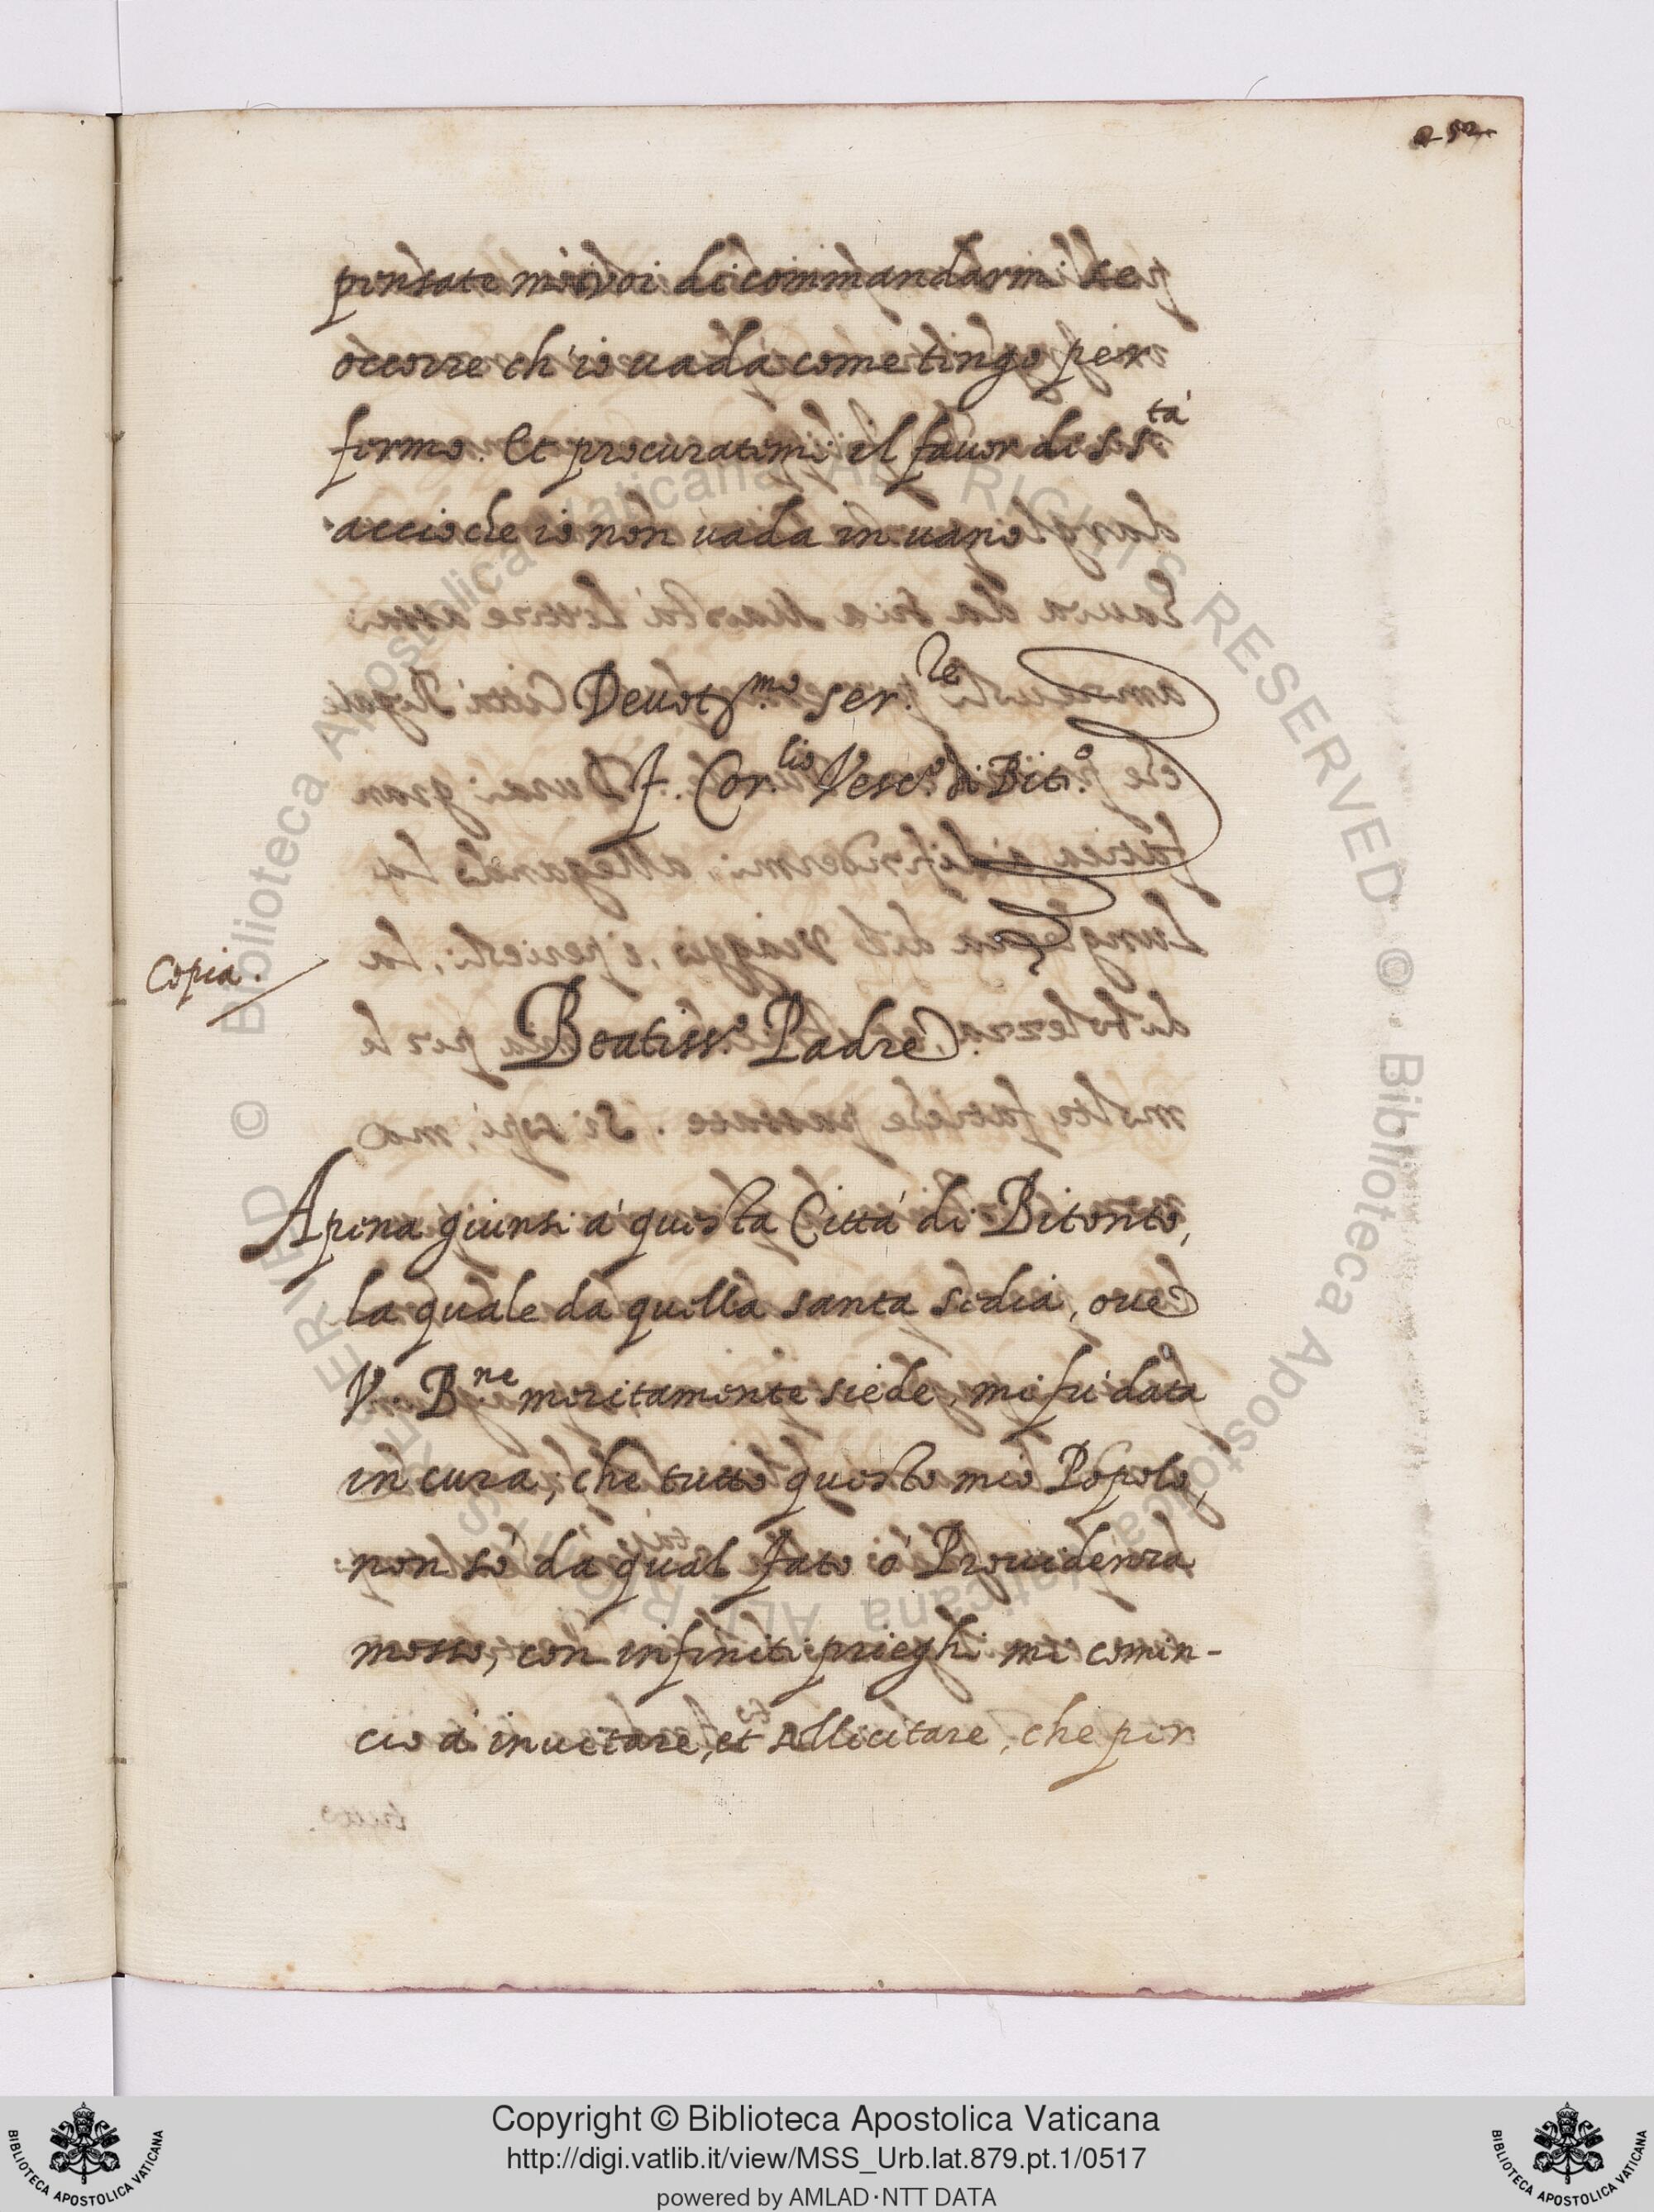 252
pensate mò voi di commandarmi se
occorre ch'io uada come tengo per
fermo. Et procuratemi il fauor di S. S.tà
accioche io non uada in uano
Deuot.mo ser.re
F. Cor.lio Vesc.o di Bit.o
Copia.
Beatiss.o Padre.
Apena giunsi a' questa Città di Bitonto,
la quale da quella santa sedia, oue
V. B.ne meritamente siede, mi fu' data
in cura, che tutto questo mio Popolo,
non sò da qual fato ò Prouidenza
mosso, con infiniti prieghi mi comin-
ciò à inuitare, et sollicitare, che per
Copyright © Biblioteca Apostolica Vaticana
http://digi.vatlib.it/view/MSS_Urb.lat.879.pt.1/0517
powered by AMLAD·NTT DATA
BIBLIOTECA APOSTOLICA VATICANA
BIBLIOTECA APOSTOLICA VATICANA